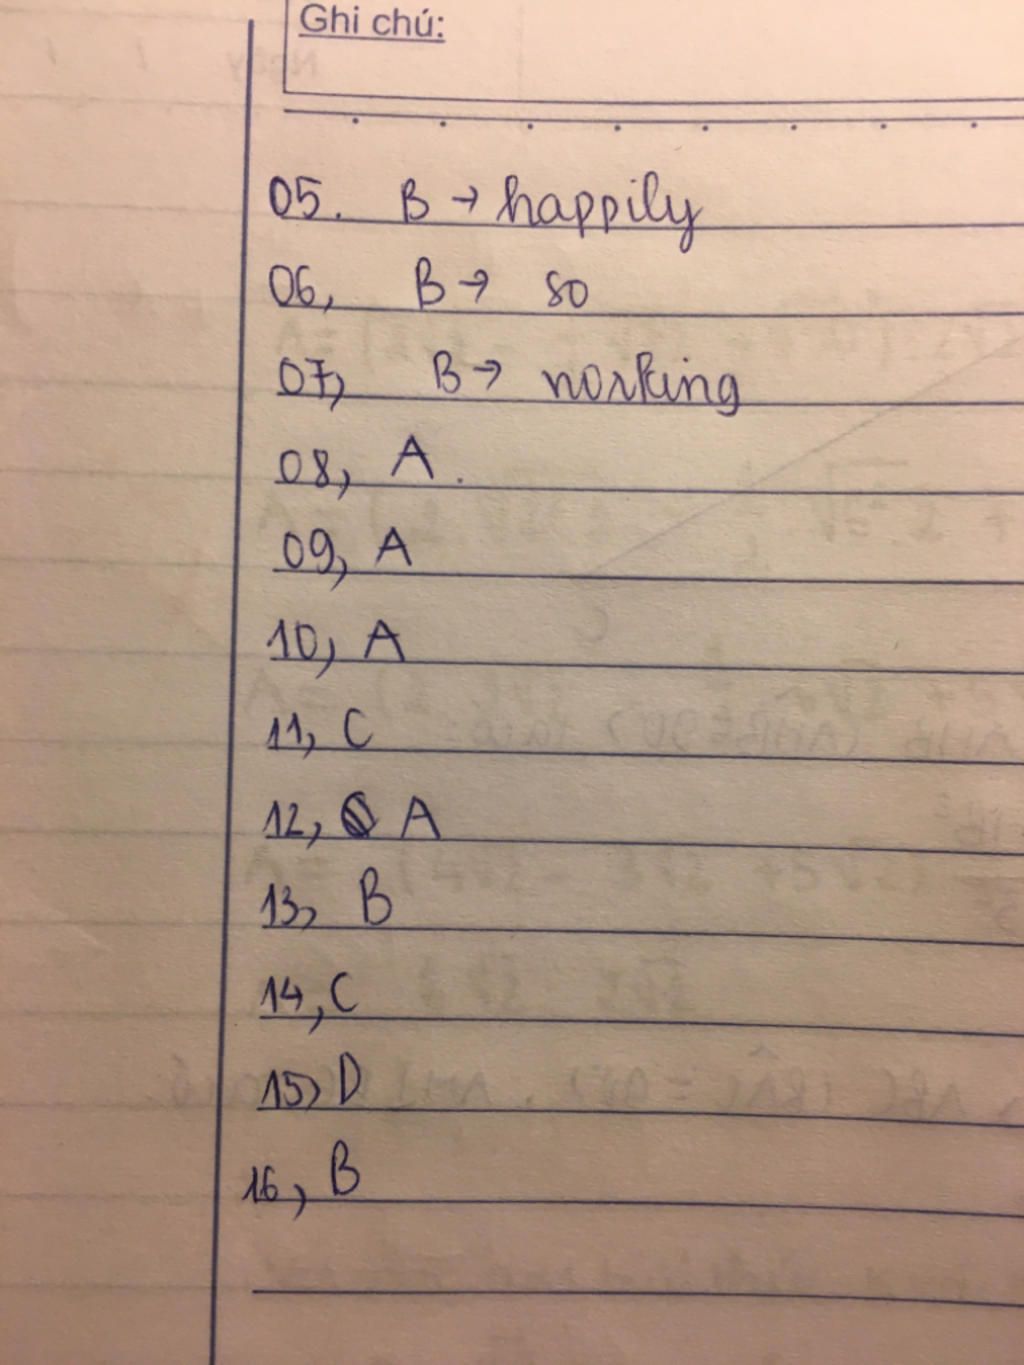 Ghi chú:
05. B → happily
06, B → so
07, B → working
08, A.
09, A
10, A
11, C
12, A
13, B
14, C
15, D
16, B